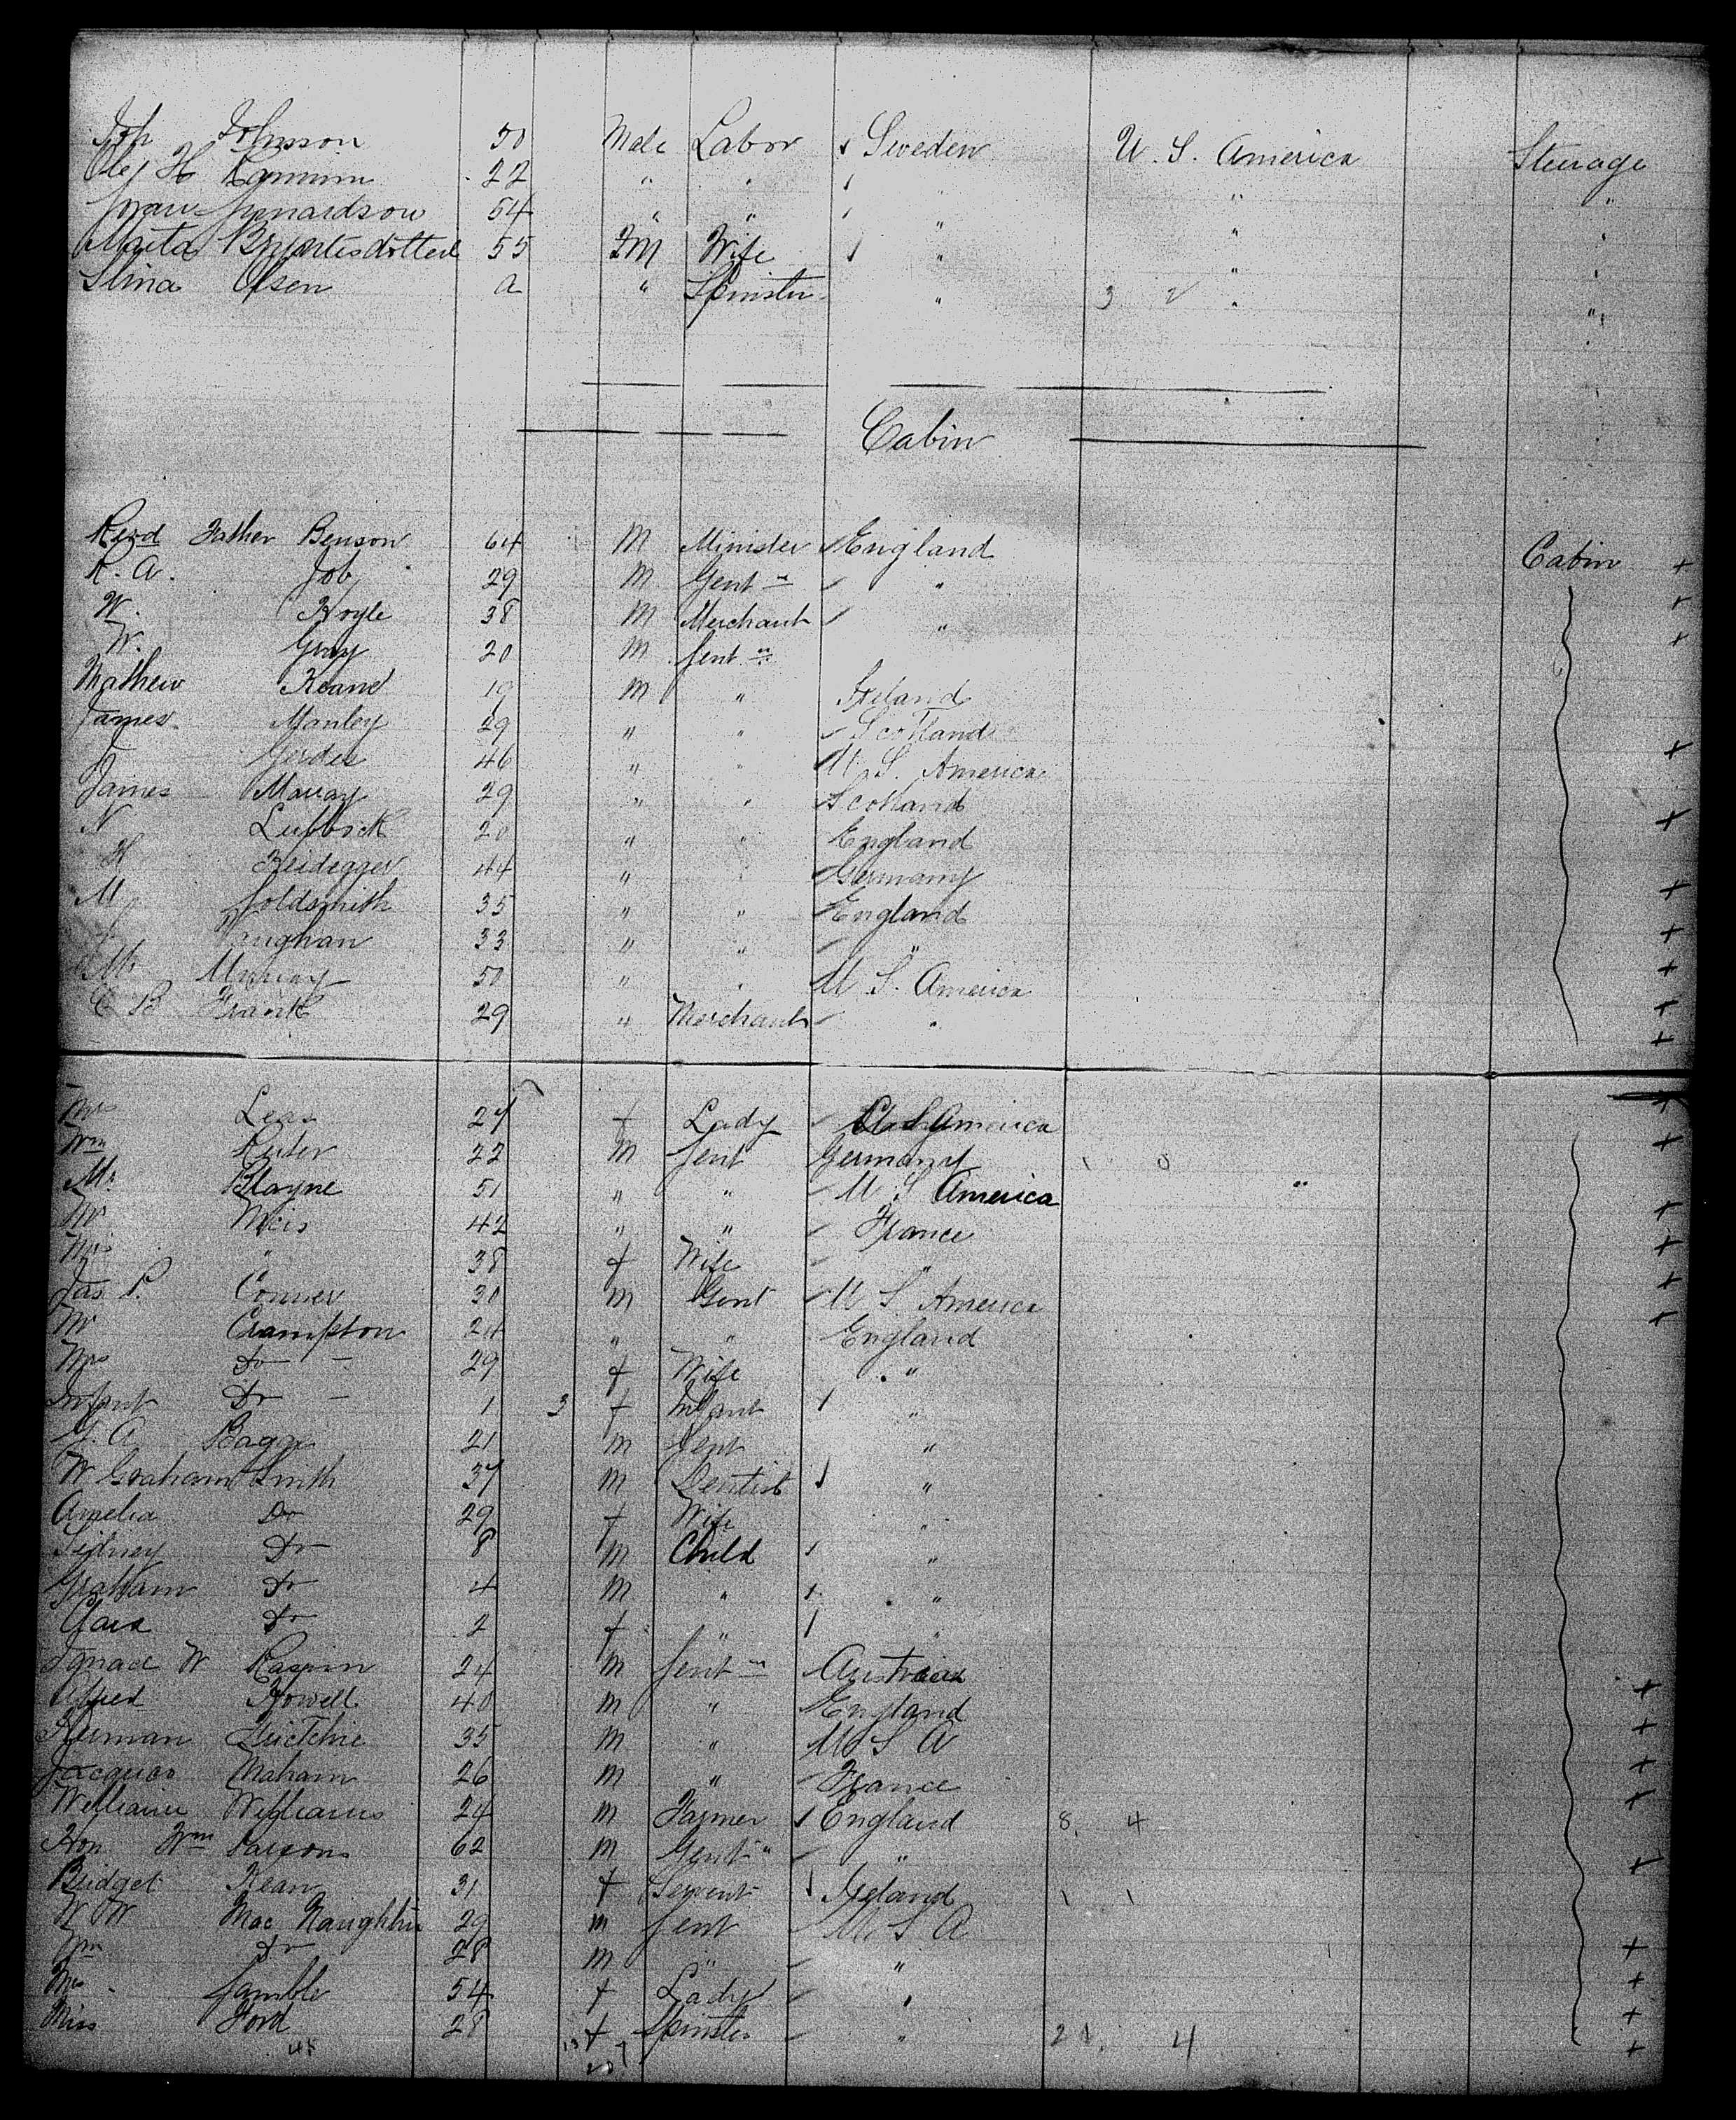 Joh Johnson 50 Male Labor Sweden U. S. America Steerage
Olej H 22 " " "
54 " " " " "
Marta 55 Fm Wife " " "
Stina Olsen a " Spinster " 3 2 " "
Cabin
Revd Father Benson 64 M Minister England Cabin +
R. A. Job 29 M Gentn "
W. Hoyle 38 M Merchant " +
W. Gray 20 M Gentn
Mathew Keane 19 M " Ireland
James Manley 29 " " Scotland +
J Gerdes 46 " " U. S. America
James Murray 29 " " Scotland +
N Lubbock 20 " " England
H Heidegger 44 " " Germany +
M Goldsmith 35 " " England +
Vaughan 33 " " " +
Mr Murray 50 " " U S. America +
C B Frank 29 " Merchant " +
Mrs Leas 27 f Lady U S America +
Wm Reiter 22 M Gent Germany
Mr Blayne 51 " " U S America " +
Mr Weis 42 " " France +
Mrs " 38 f Wife " +
Jas P. Conner 30 m Gent U S. America +
Mr Crampton 24 " " England
Mrs Do 29 f Wife "
Infant Do 1 3 f Infant "
G. A. Bagge 21 m Gent "
W Graham Smith 37 m Dentist "
Amelia Do 29 f Wife "
Sidney Do 8 m Child "
Graham Do 4 m " "
Clara Do 2 f " "
Ignace W Kaspin 24 m Gentn Austria +
Alfred Howell 40 m " England +
Herman 35 m " U S A +
Jacques Maham 26 m " France +
William Williams 24 m Farmer England 8. 4
Hon Wm Parsons 62 m Gentn " +
Bridget Kean 31 f Servent Ireland 1 1
W W Mac Naughtin 29 m Gent U S A +
Wm Do 28 m " " +
Mrs Gamble 54 f Lady " +
Miss Ford 28 f Spinster " 20. 4 +